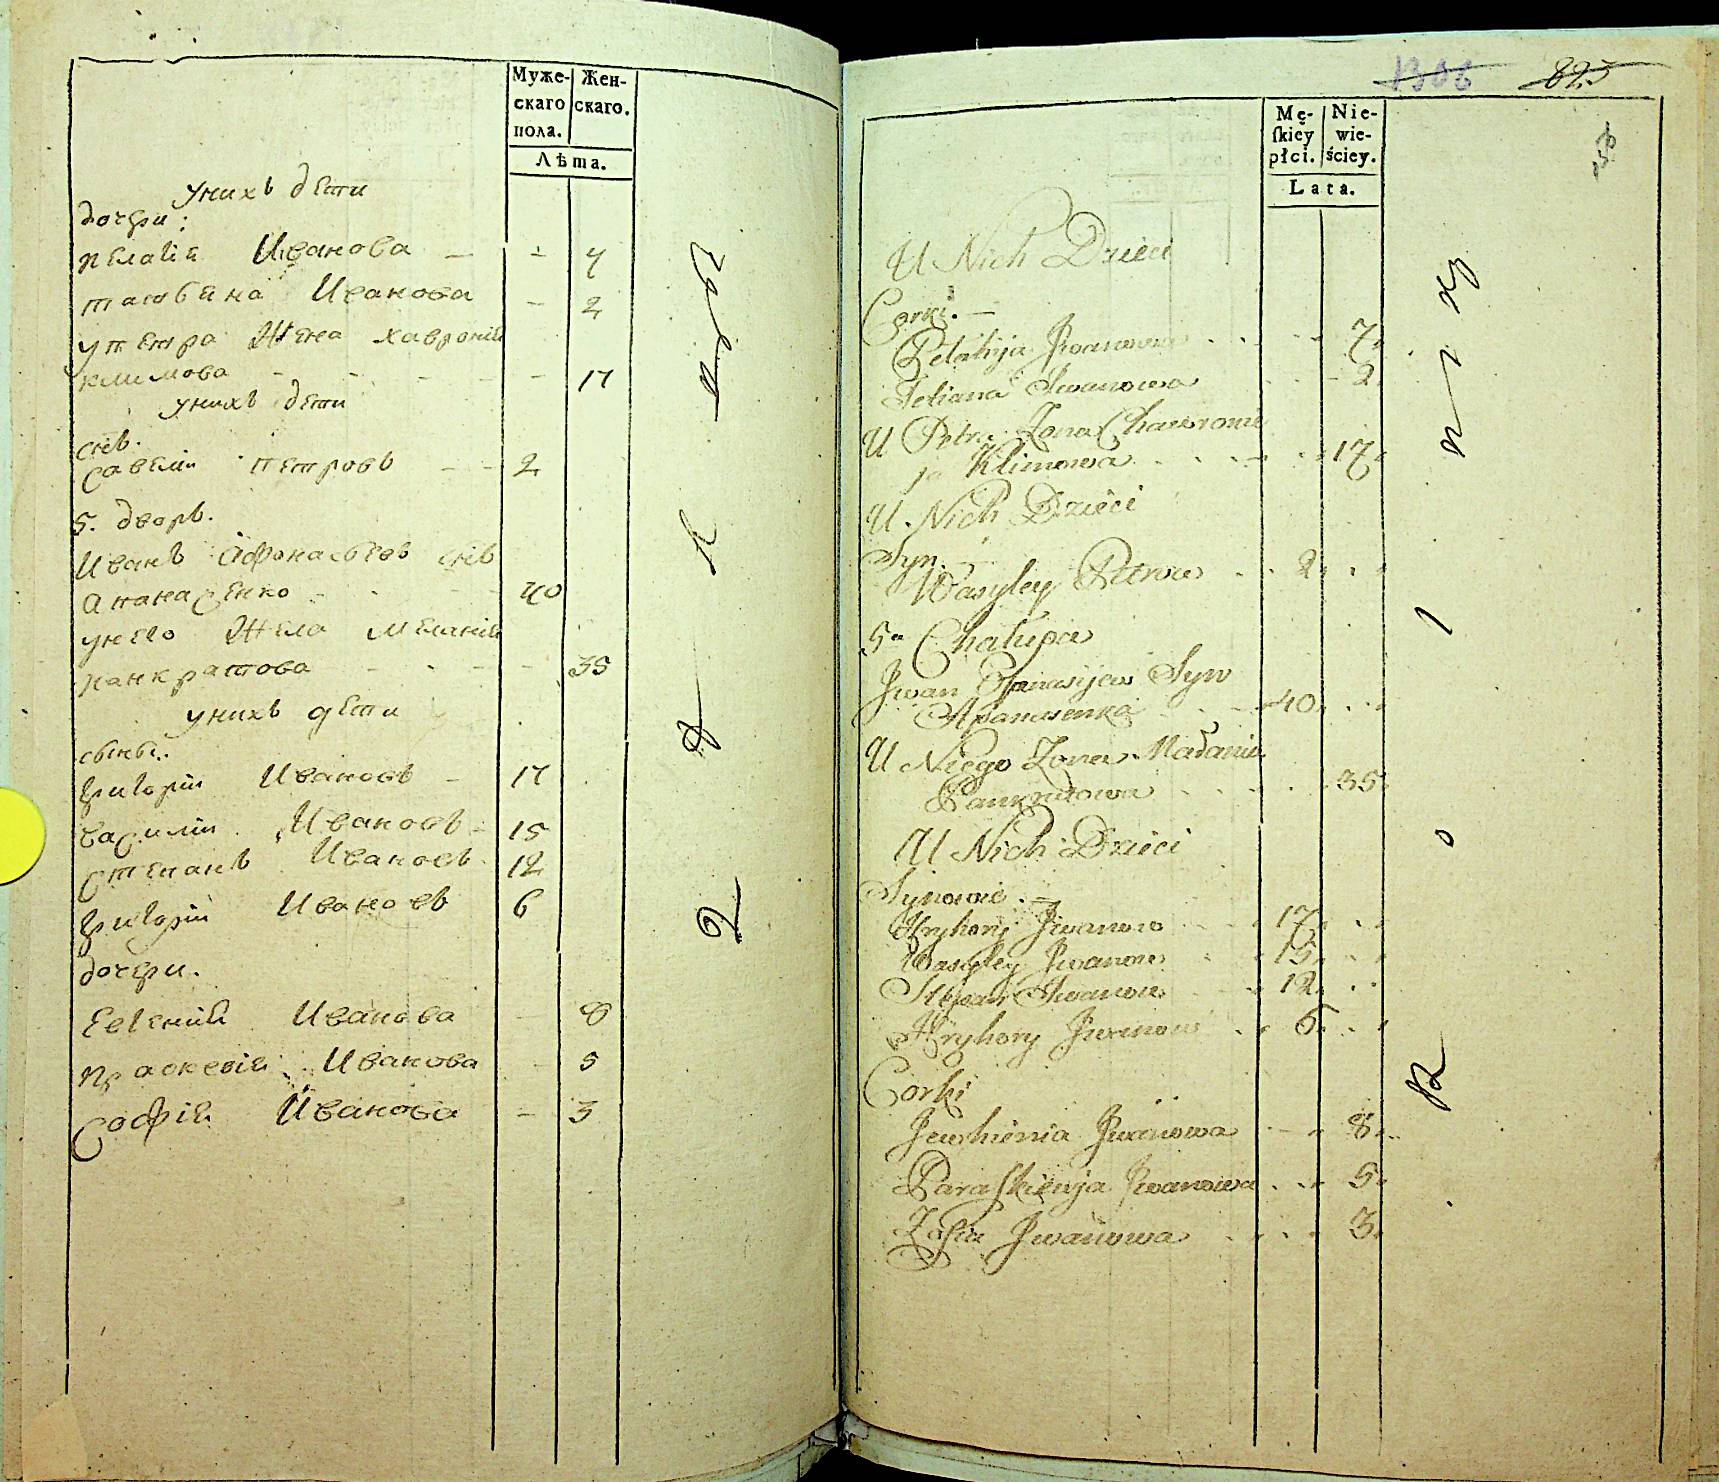 Муже-
скаго
пола.
Жен-
скаго.
Лѣта.
унихъ дети
дочери:
пелагіе Иванова - - 7
татьяна Иванова - 2
упетра Жена хавроніе
климова - - - - - 17
унихъ дети
снъ.
Савелии петровъ - - 2
5. дворъ.
Иванъ Афонасьевъ снъ
Апанасенко - - - 40
унего Жена меланіе
панкратова - - - - 35
унихъ дети
сыны.
григорій Ивановъ - 17
василій Ивановъ - 15
степанъ Ивановъ 12
григорій Ивановъ 6
дочери.
Евгеніе Иванова - 8
праскевіе Иванова - 5
Софіе Иванова - 3
1306 825
Mę-
ſkiey
płci.
Nie-
wie-
ściey.
Lata.
U Nich Dzieci
Corki.
Pelahija Jwanowa 7
Tetiana Jwanowa 2
U Petra Zona Chawronie
ja Klimowa 17
U Nich Dzieci
Syn.
Wasyley Petrow 2
5a Chałupa
Jwan Ofanasijew Syn
Apanasenka 40
U Niego Zona Małania
Pankratowa 35
U Nich Dzieci
Synowie.
Hryhory Jwanow 17
Wasyley Jwanow 15
Stepan Jwanow 12
Hryhory Jwanow 6
Corki
Jewhienia Jwanowa 8
Paraſkiewja Jwanowa 5
Zofia Jwanowa 3